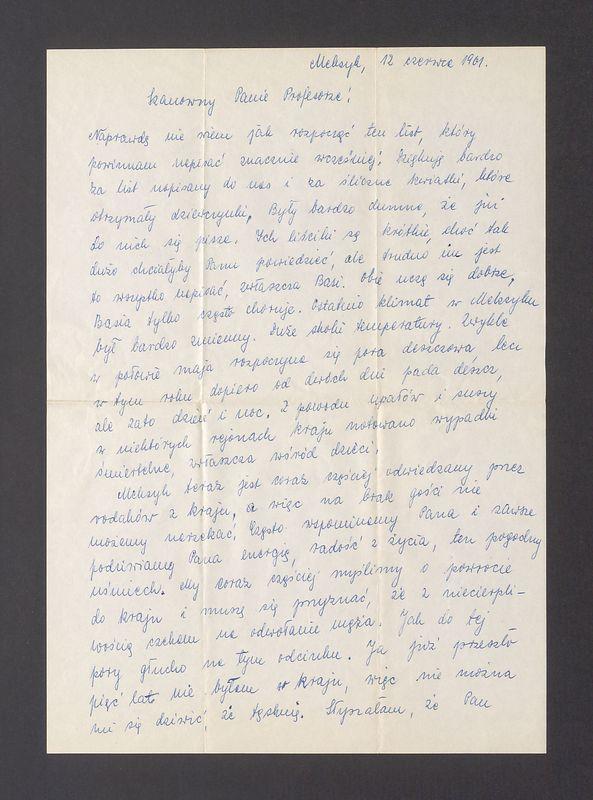 Meksyk, 12 czerwca 1961.
Szanowny Panie Profesorze!
Naprawdę nie wiem jak rozpocząć ten list, który
powinnam napisać znacznie wcześniej. Dziękuję bardzo
za list napisany do nas i za śliczne kwiatki, które
otrzymały dziewczynki. Były bardzo dumne, że już
do nich się pisze. Ich liściki są krótkie, choć tak
dużo chciałyby Panu powiedzieć, ale trudno im jest
to wszystko napisać, zwłaszcza Basi. Obie uczą się dobrze,
Basia tylko często choruje. Ostatnio klimat w Meksyku
był bardzo zmienny. Duże skoki temperatury. Zwykle
w połowie maja rozpoczyna się pora deszczowa, lecz
w tym roku dopiero od dwóch dni pada deszcz,
ale zato dzień i noc. Z powodu upałów i suszy
w niektórych rejonach kraju notowano wypadki
śmiertelne, zwłaszcza wśród dzieci.
Meksyk teraz jest coraz częściej odwiedzany przez
rodaków z kraju, a więc na brak gości nie
możemy narzekać. Często wspominamy Pana i zawsze
podziwiamy Pana energię, radość z życia, ten pogodny
uśmiech. My coraz częściej myślimy o powrocie
do kraju i muszę się przyznać, że z niecierpli-
wością czekam na odwołanie męża. Jak do tej
pory głucho na tym odcinku. Ja już przeszło
pięć lat nie byłam w kraju, więc nie można
mi się dziwić, że tęsknię. Słyszałam, że Pan